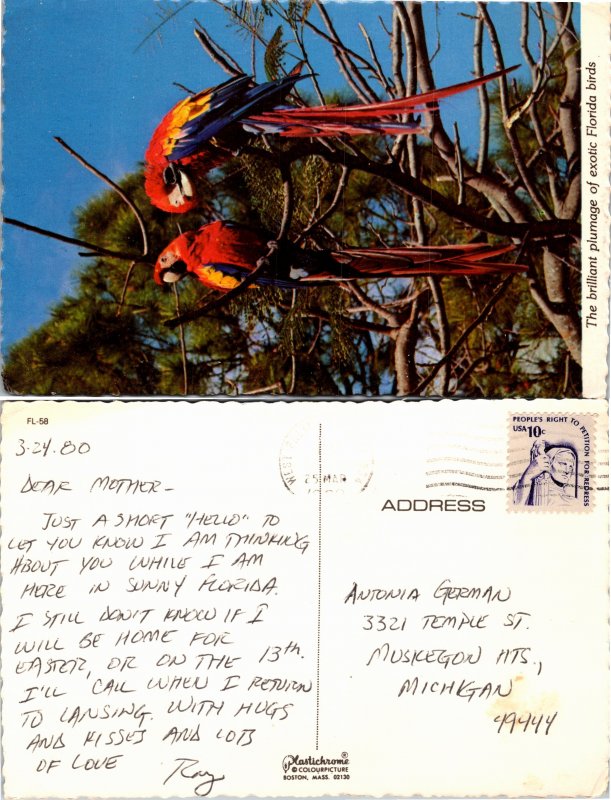 The brilliant plumage of exotic Florida birds
FL-58
3-24.80
DEAR MOTHER-
JUST A SHORT "HELLO" TO
LET YOU KNOW I AM THINKING
ABOUT YOU WHILE I AM
HERE IN SUNNY FLORIDA.
I STILL DON'T KNOW IF I
WILL BE HOME FOR
EASTER, OR ON THE 13th.
I'LL CALL WHEN I RETURN
TO LANSING. WITH HUGS
AND KISSES AND LOTS
OF LOVE
Ray
PEOPLE'S RIGHT TO PETITION FOR REDRESS
USA 10c
ADDRESS
ANTONIA GERMAN
3321 TEMPLE ST.
MUSKEGON HTS.,
MICHIGAN
49444
Plastichrome®
© COLOURPICTURE
BOSTON, MASS. 02130